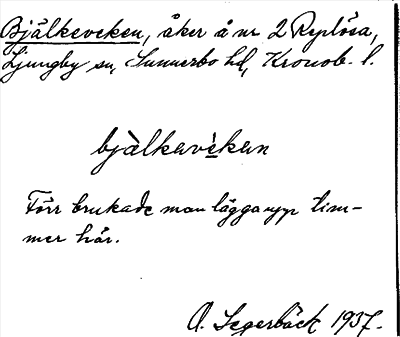 Bjälkeveken, åker å nr 2 Ryplösa,
Ljungby sn, Sunnerbo hd, Kronob. l.
bjàlkavèkan
Förr brukade man lägga upp tim-
mer här.
A. Segerbäck 1937.